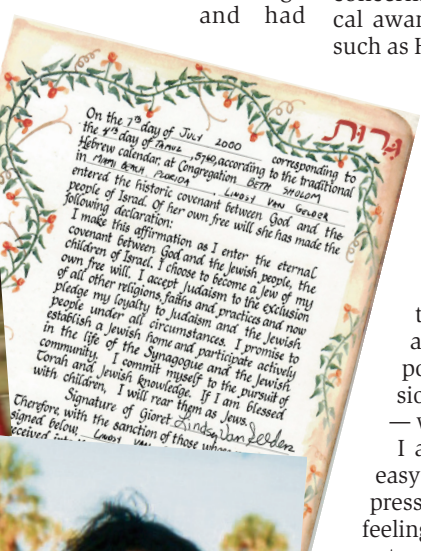 and had
cal awar
such as H
גרות
On the 7th day of JULY 2000 corresponding to
the 4th day of TAMUZ, 5760, according to the traditional
Hebrew calendar, at Congregation BETH SHOLOM
in MIAMI BEACH FLORIDA, LINDSY VAN GELDER
entered the historic covenant between God and the
people of Israel. Of her own free will she has made the
following declaration:
I make this affirmation as I enter the eternal
covenant between God and the Jewish people, the
children of Israel. I choose to become a Jew of my
own free will. I accept Judaism to the exclusion
of all other religions, faiths and practices and now
pledge my loyalty to Judaism and the Jewish
people under all circumstances. I promise to
establish a Jewish home and participate actively
in the life of the Synagogue and the Jewish
community. I commit myself to the pursuit of
Torah and Jewish knowledge. If I am blessed
with children, I will rear them as Jews.
Signature of Gioret Lindsy Van Gelder
Therefore, with the sanction of those whose
signed below, LINDSY VAN
t
a
po
sion
— w
I a
easy
press
feeling